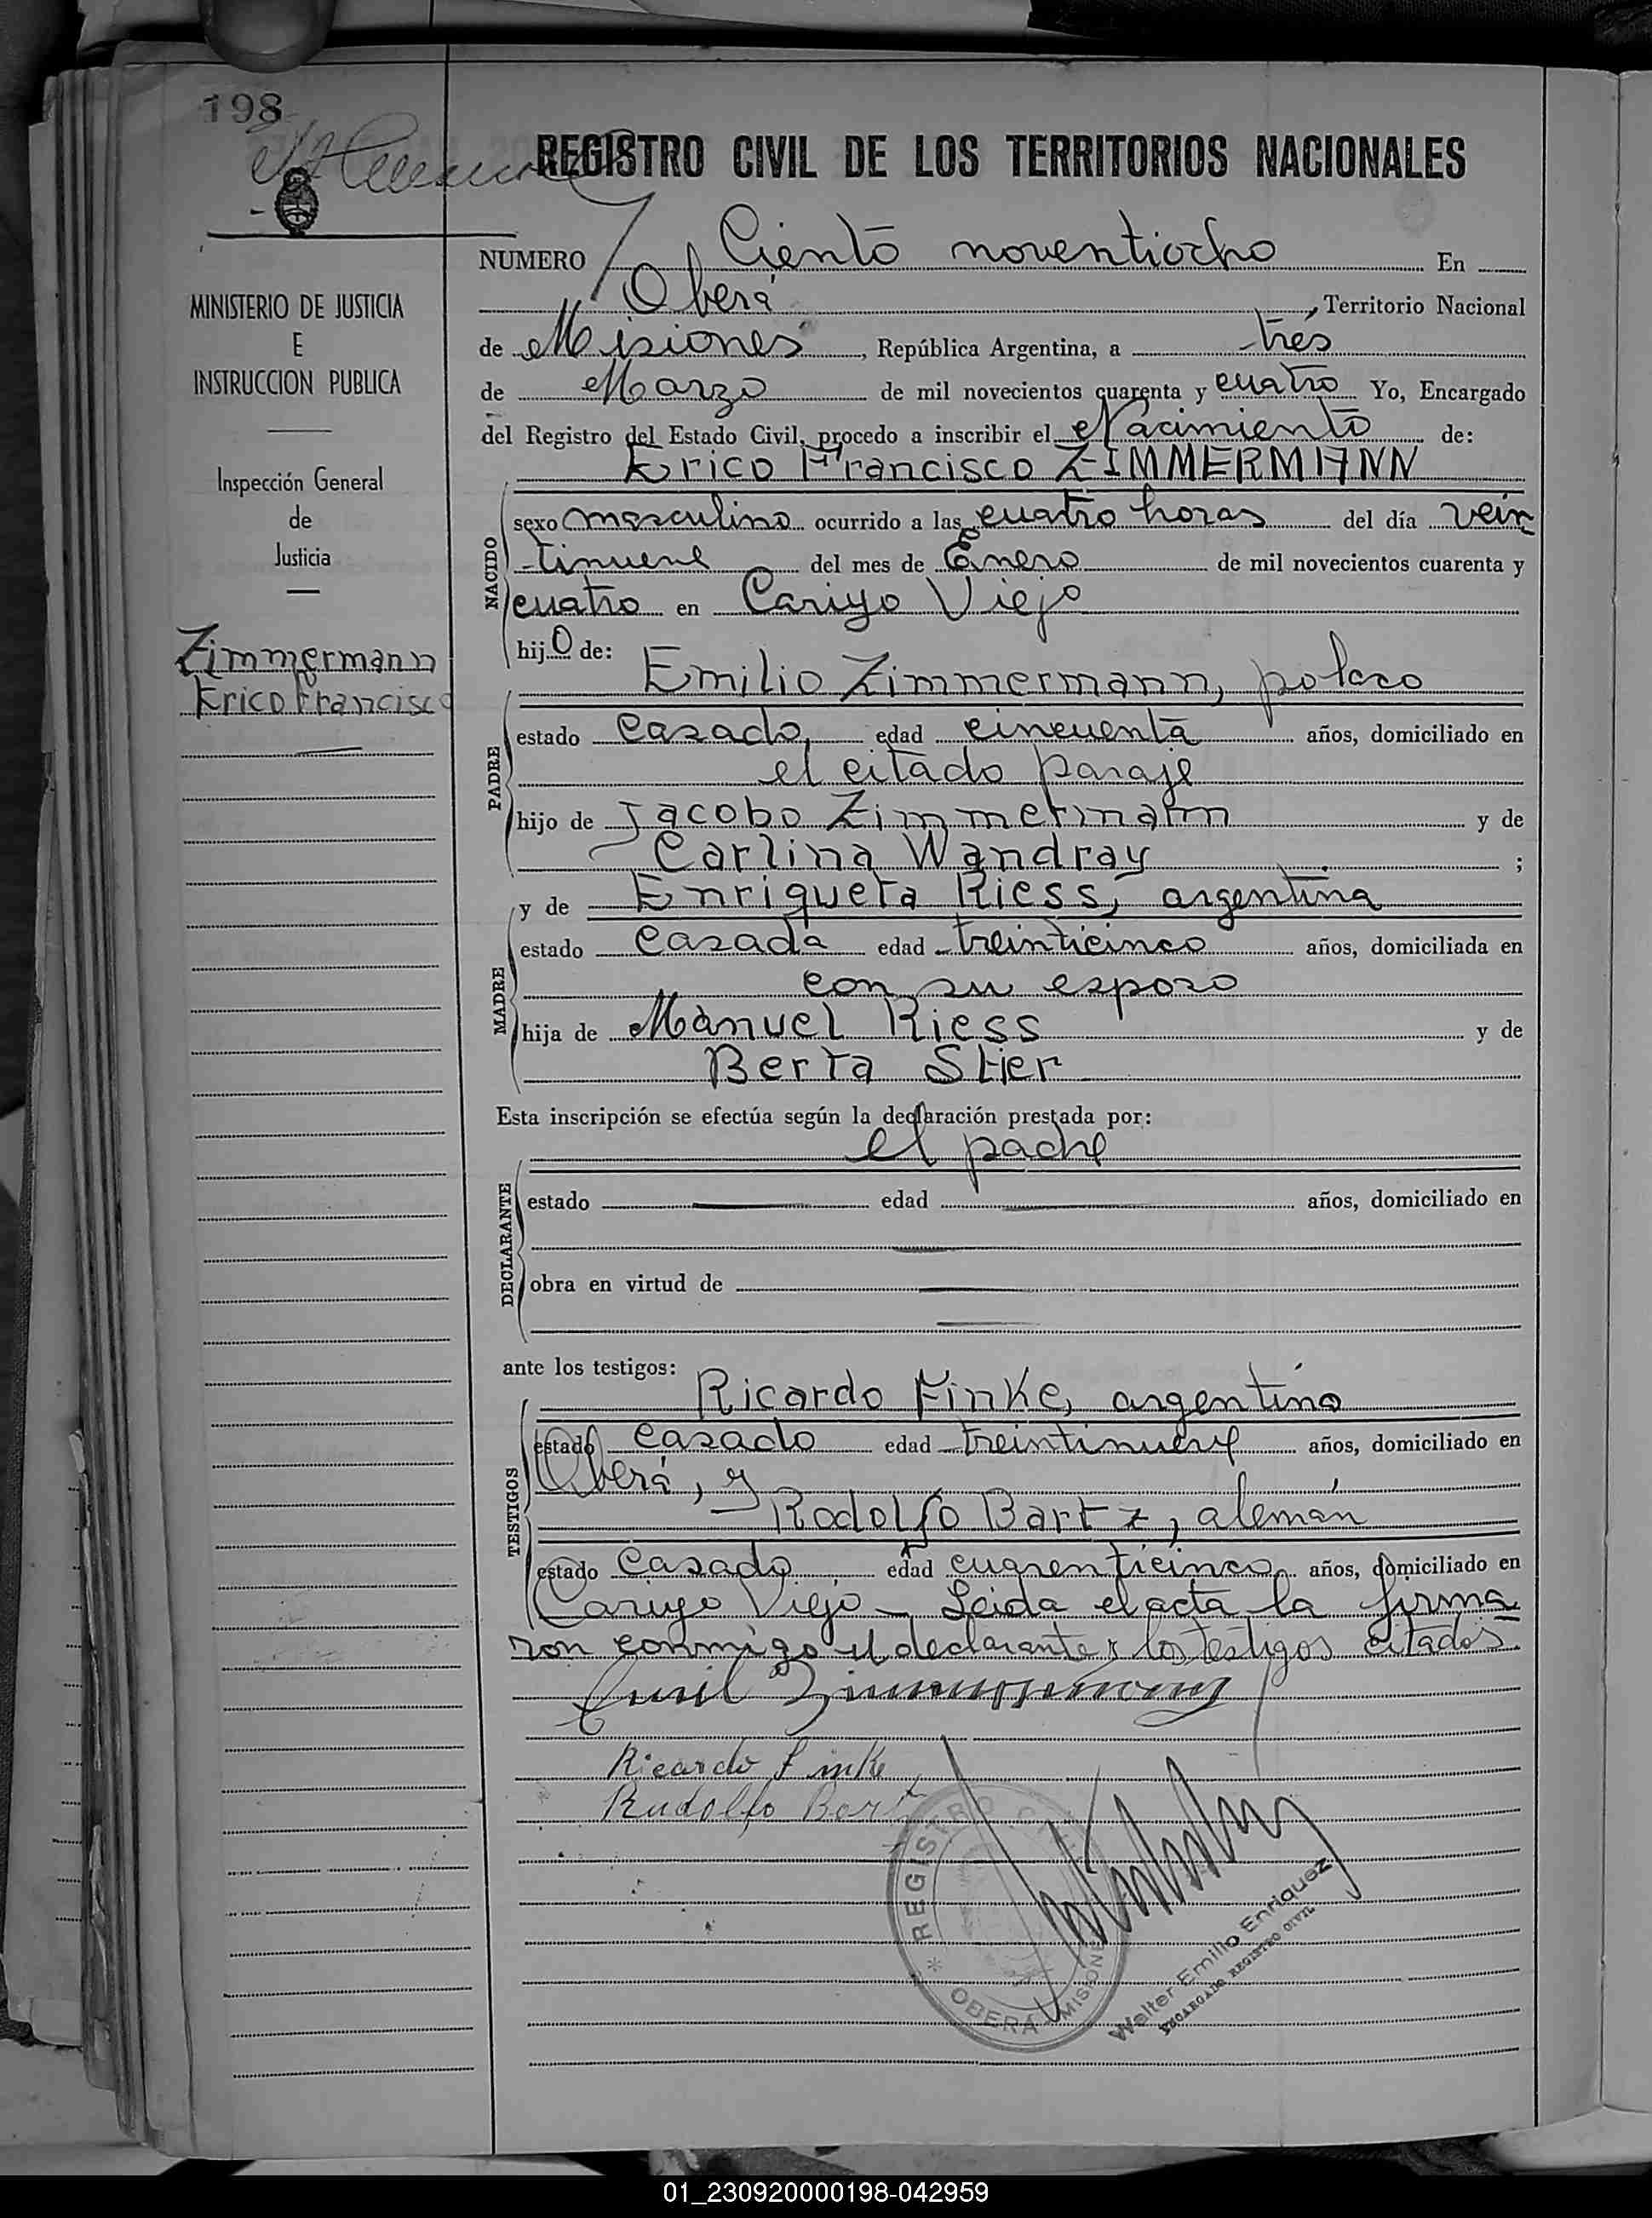 198
REGISTRO CIVIL DE LOS TERRITORIOS NACIONALES
NUMERO Ciento noventiocho En
Oberá, Territorio Nacional
de Misiones, República Argentina, a tres
de Marzo de mil novecientos cuarenta y cuatro Yo, Encargado
del Registro del Estado Civil, procedo a inscribir el Nacimiento de:
Erico Francisco ZIMMERMANN
NACIDO
sexo masculino ocurrido a las cuatro horas del día vein
tinueve del mes de Enero de mil novecientos cuarenta y
cuatro en Cariyo Viejo
hijo de:
PADRE
Emilio Zimmermann, polaco
estado casado, edad cincuenta años, domiciliado en
el citado paraje
hijo de Jacobo Zimmermann y de
Carlina Wandray ;
MADRE
y de Enriqueta Riess, argentina
estado casada edad treinticinco años, domiciliada en
con su esposo
hija de Manuel Riess y de
Berta Stier
Esta inscripción se efectúa según la declaración prestada por:
DECLARANTE
el padre
estado edad años, domiciliado en
obra en virtud de
ante los testigos:
TESTIGOS
Ricardo Finke, argentino
estado casado edad treintinueve años, domiciliado en
Oberá, y
Rodolfo Bartz, alemán
estado casado edad cuarenticinco años, domiciliado en
Cariyo Viejo - Leida el acta la firma
ron conmigo el declarante y los testigos citados.
Emil Zimmermann
Ricardo Finke
Rudolfo Bartz
REGISTRO CIVIL
OBERÁ MISIONES
Walter Emilio Enriquez
ENCARGADO REGISTRO CIVIL
MINISTERIO DE JUSTICIA
E
INSTRUCCION PUBLICA
Inspección General
de
Justicia
Zimmermann
Erico Francisco
01_230920000198-042959